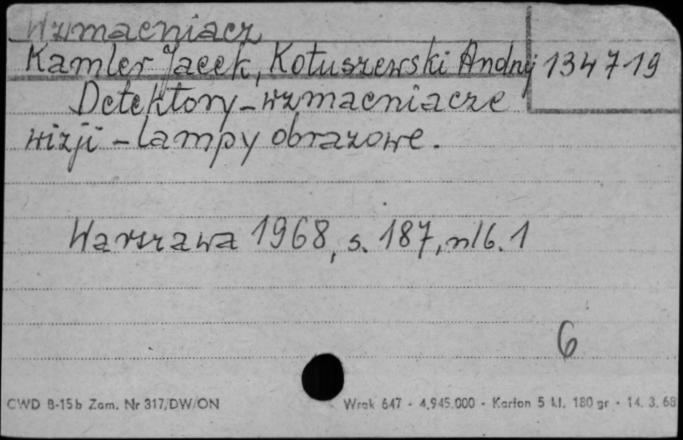 Wzmacniacz
Kamler Jacek, Kotuszewski Andrzej 1347-19
Detektory - wzmacniacze
wizji - lampy obrazowe.
Warszawa 1968, s. 187, nlb. 1
6
CWD B-15b Zam. Nr 317/DW/ON Wrak 647 - 4.945.000 - Karton 5 kl. 180 gr - 14. 3. 68